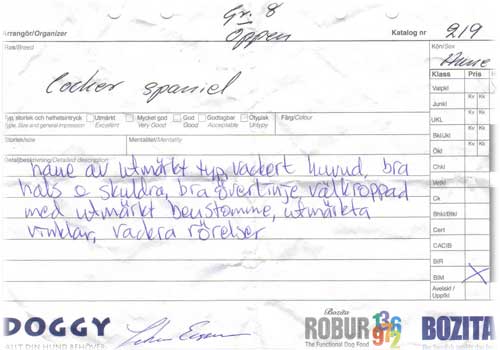 Gr. 8
Öppen
Arrangör/Organizer
Katalog nr 219
Ras/Breed
Kön/Sex
Hane
cocker spaniel
Klass Pris
Valpkl
Kv Kk
Junkl
Kv Kk
Typ, storlek och helhetsintryck Utmärkt Mycket god God Godtagbar Otypisk Färg/Colour
Type, Size and general impression Excellent Very Good Good Acceptable Untypy
UKL
Kv Kk
Storlek/size Mentalitet/Mentality
Bkl/Jkl
Kv Kk
Ökl
Kv Kk
Detaljbeskrivning/Detailed description
hane av utmärkt typ, vackert huvud, bra
hals & skuldra, bra överlinje, välkroppad
med utmärkt benstomme, utmärkta
vinklar, vackra rörelser
Chkl
Vetkl
Ck
Bhkl/Btkl
Cert
CACIB
BIR
BIM X
Avelskl /
Uppfkl
DOGGY
ALLT DIN HUND BEHÖVER
Bozita
ROBUR
The Functional Dog Food
BOZITA